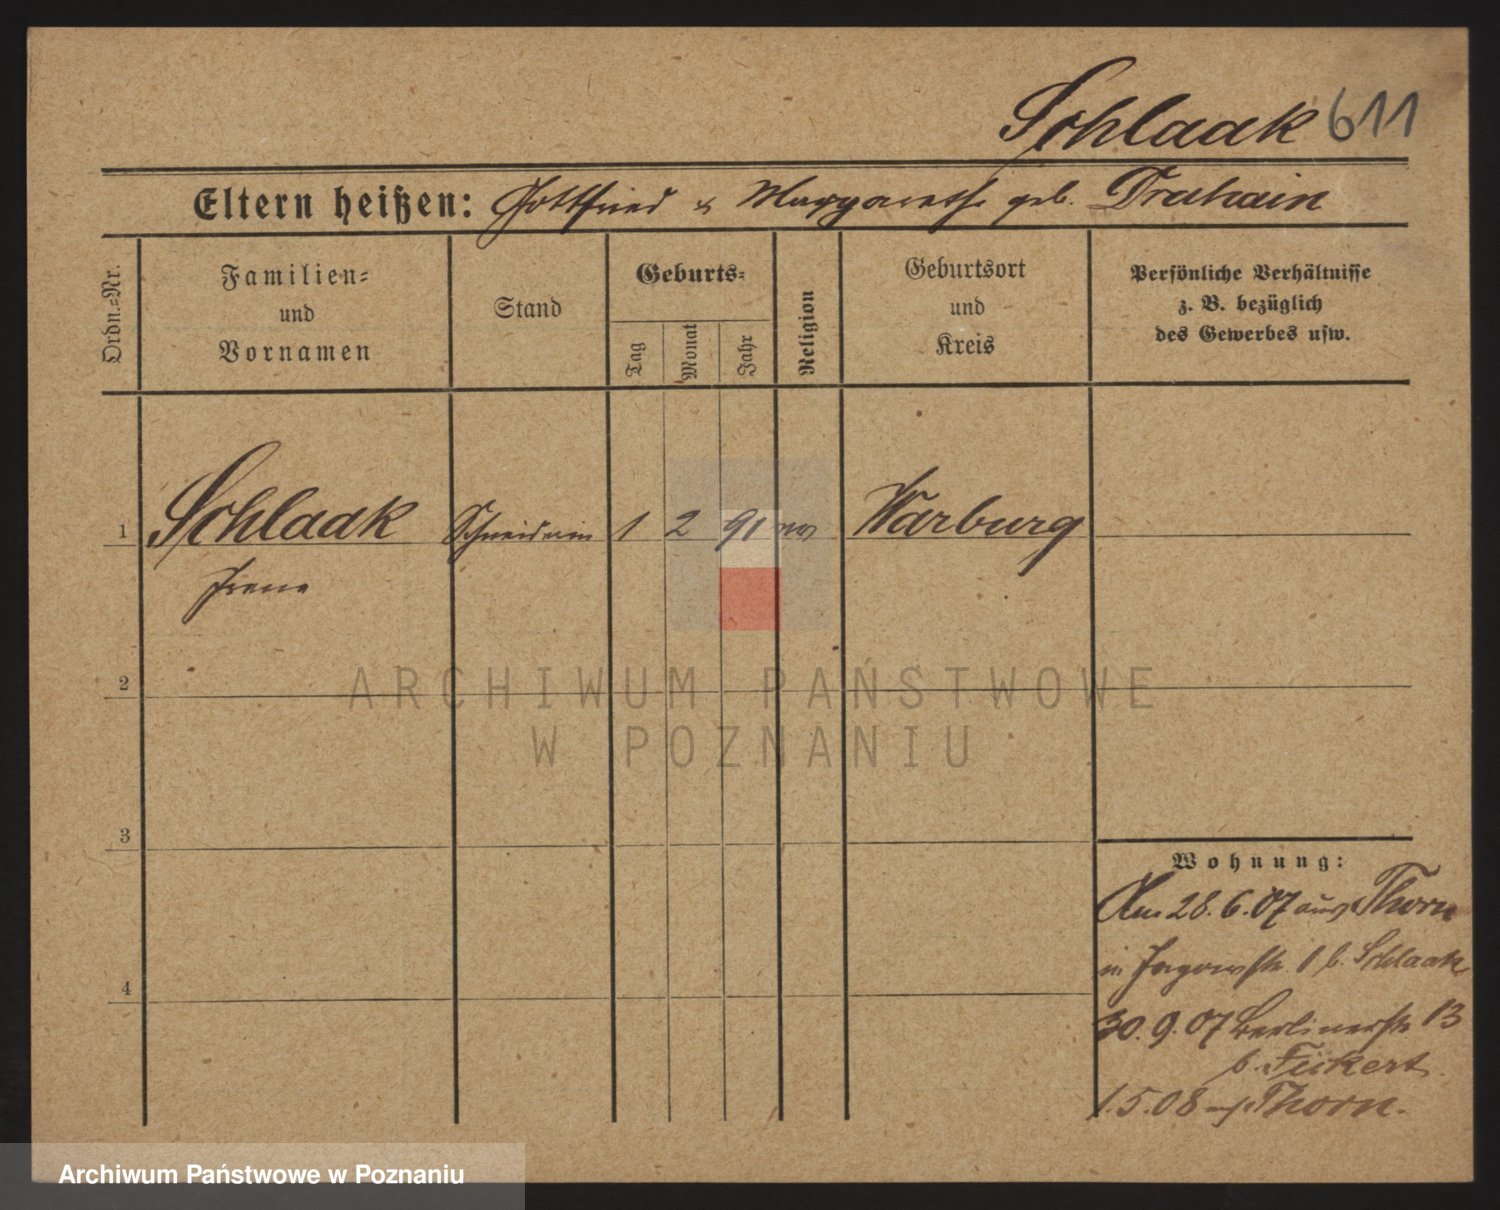 Schlaak 611
Eltern heißen: Gottfried & Margarethe geb. Drahain
Ordn.-Nr.
Familien-
und
Vornamen
Stand
Geburts-
Tag
Monat
Jahr
Religion
Geburtsort
und
Kreis
Persönliche Verhältnisse
z. B. bezüglich
des Gewerbes usw.
1 Schlaak Schneiderin 1 2 91 ev Warburg
Irene
2
ARCHIWUM PAŃSTWOWE
W POZNANIU
3
Wohnung:
Am 28.6.07 aus Thorn
in Jagowstr. 1 b. Schlaak
4
30.9.07 Berlinerstr. 13
b. Fickert.
1.5.08 Thorn.
Archiwum Państwowe w Poznaniu